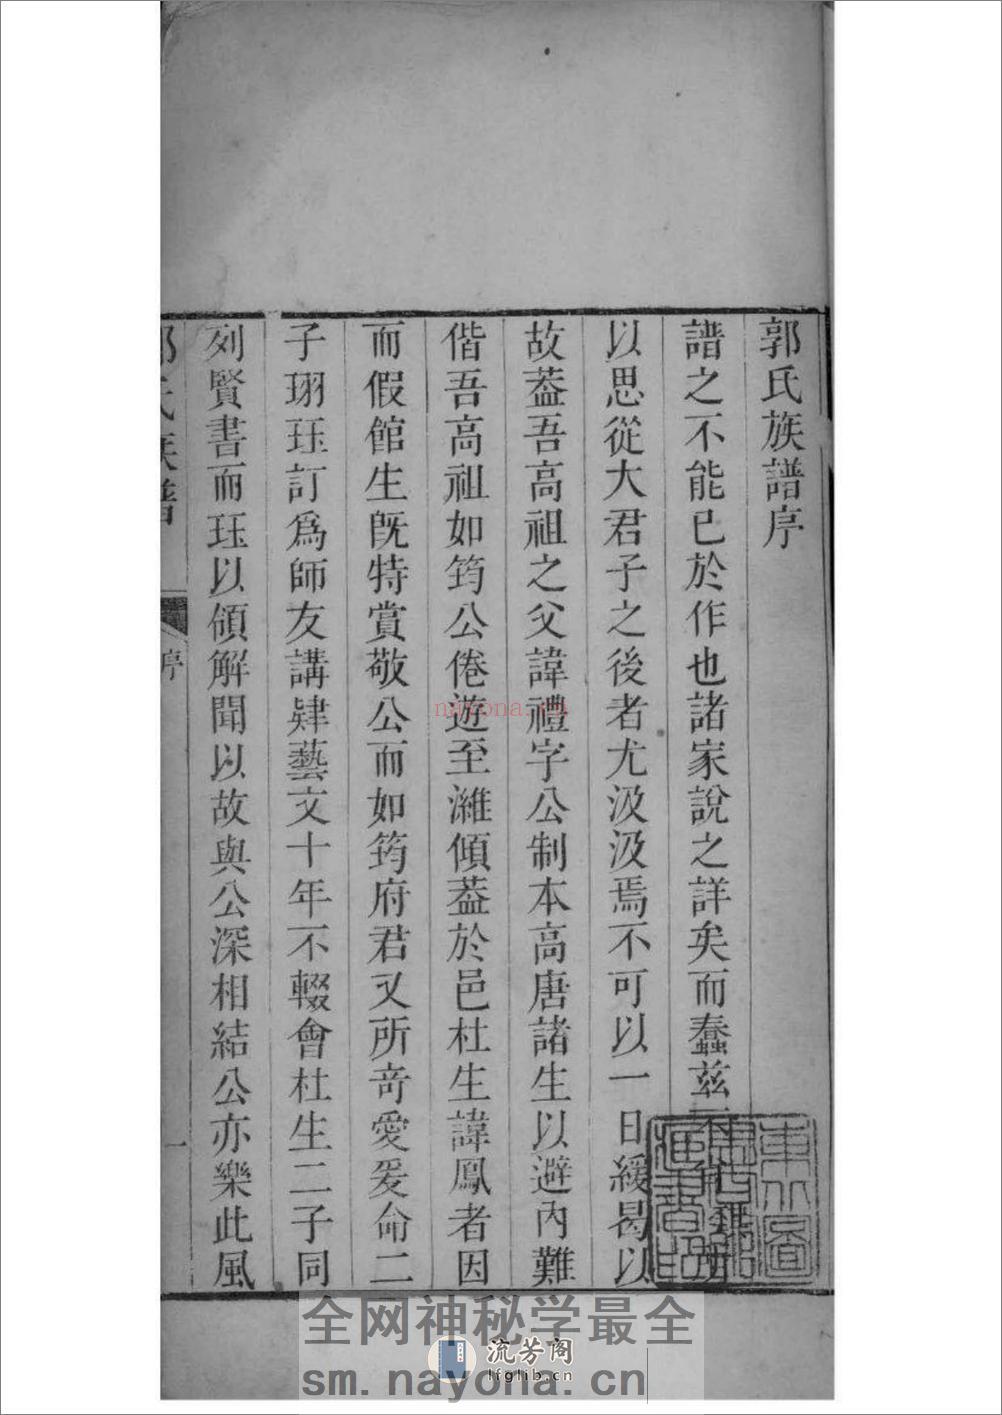 郭氏族譜序
譜之不能已於作也諸家說之詳矣而蠢茲不
以思從大君子之後者尤汲汲焉不可以一日緩曷以
故葢吾高祖之父諱禮字公制本高唐諸生以避內難
偕吾高祖如筠公倦遊至濰傾葢於邑杜生諱鳳者因
而假館生既特賞敬公而如筠府君又所奇愛爰命二
子珝珏訂爲師友講肄藝文十年不輟會杜生二子同
列賢書而珏以領解聞以故與公深相結公亦樂此風
郭氏族譜
序
一
nayona.cn
全网神秘学最全
流芳阁
lfglib.cn
sm.nayona.cn